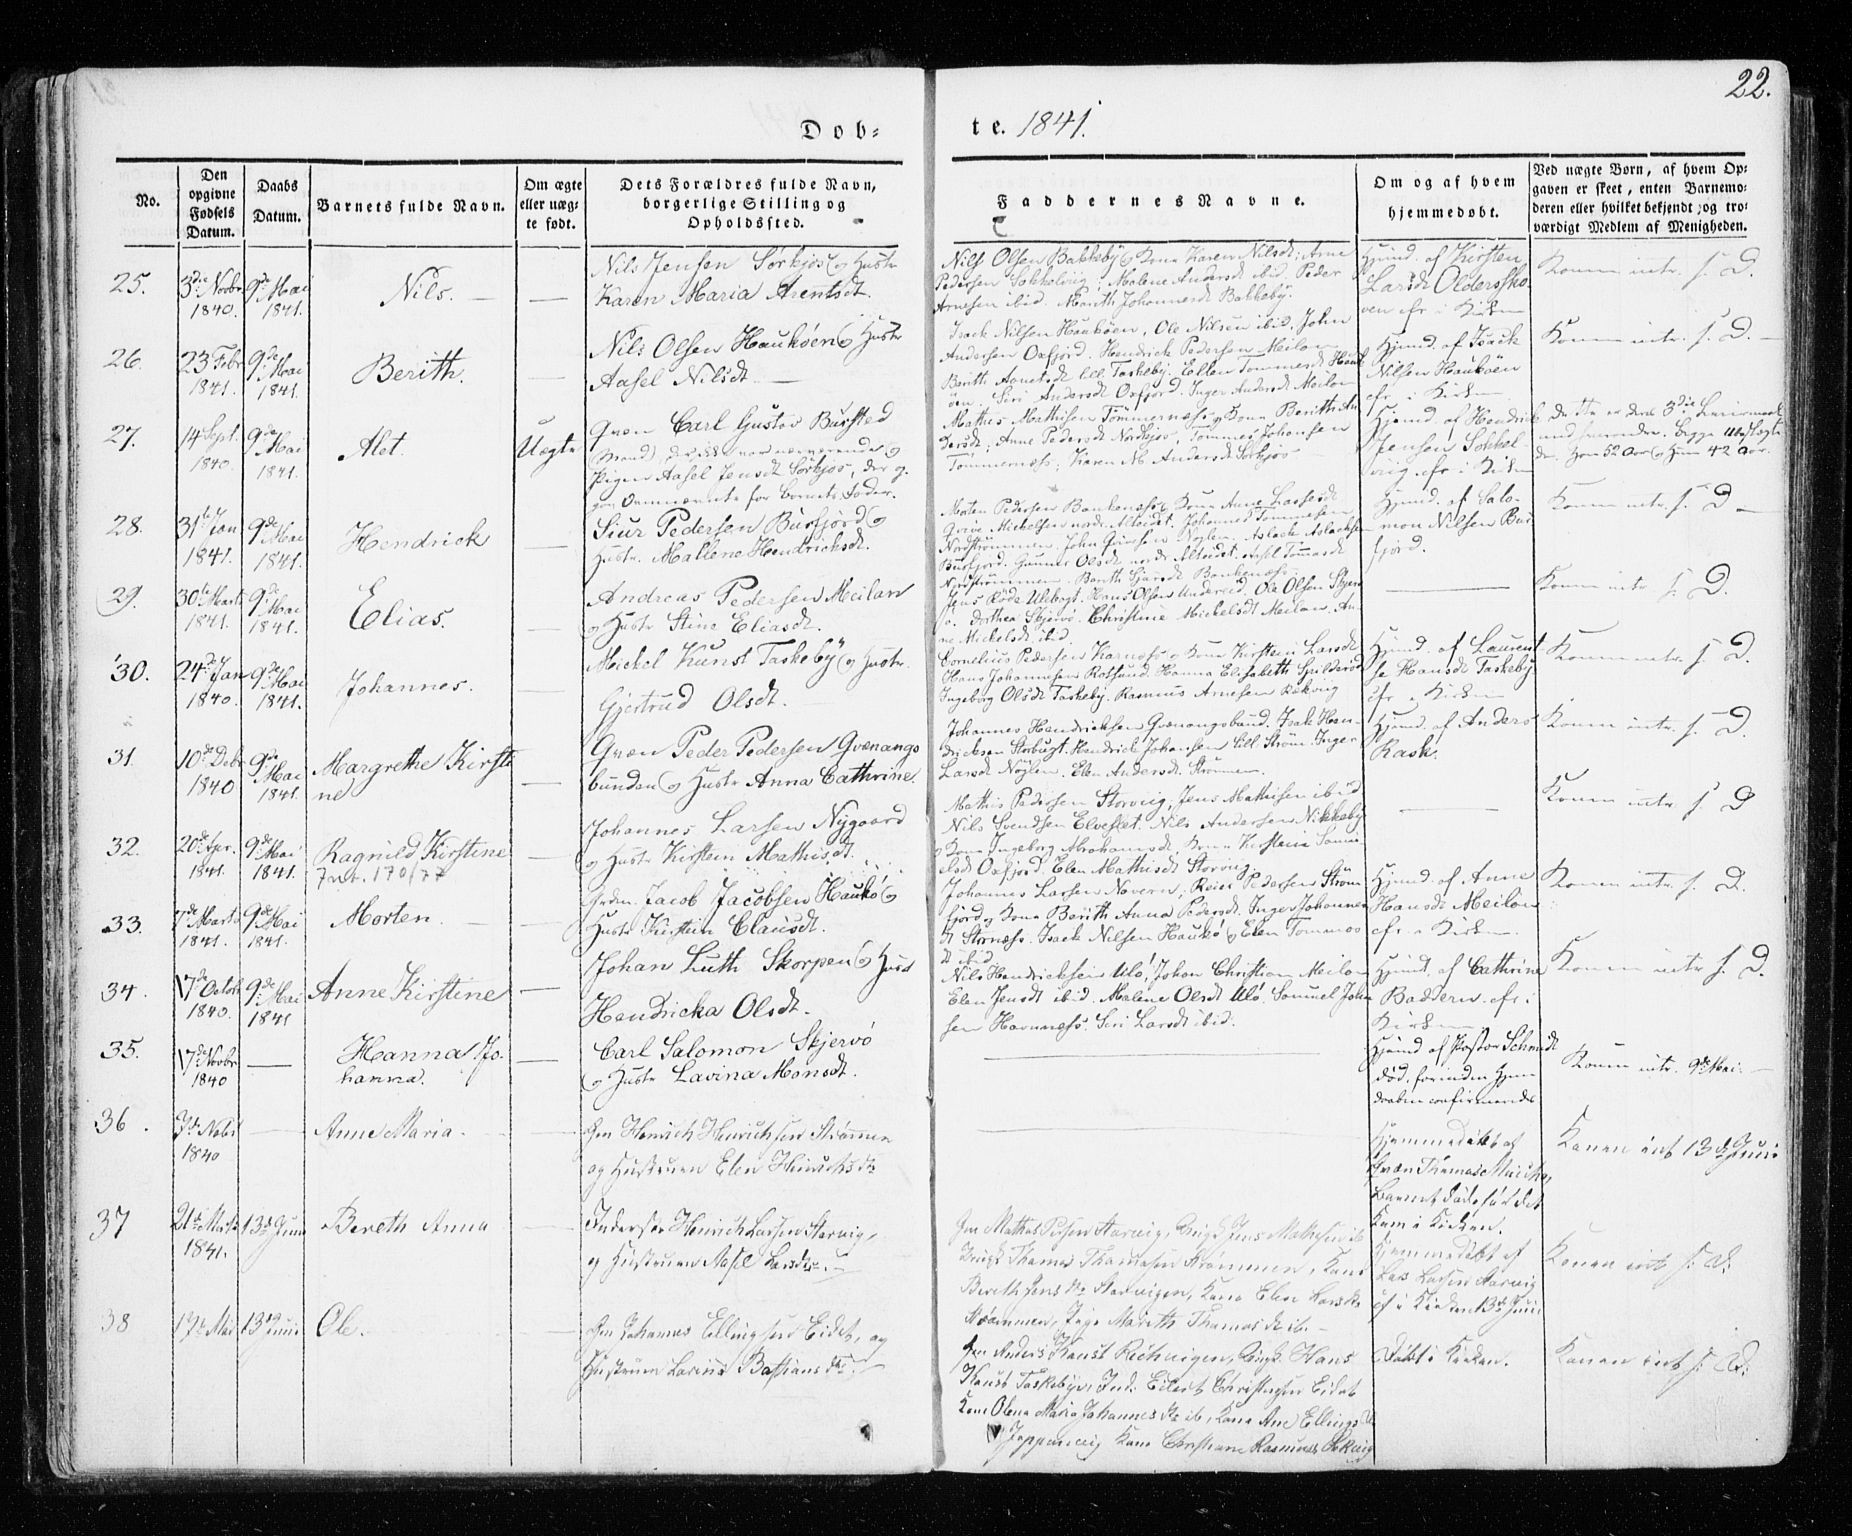 22.
Døb=
te. 1841.
No.
Den opgivne Fødsels Datum.
Daabs Datum.
Barnets fulde Navn.
Om ægte eller uægte født.
Dets Forældres fulde Navn, borgerlige Stilling og Opholdssted.
Faddernes Navne.
Om og af hvem hjemmedøbt.
Ved uægte Børn, af hvem Opgaven er skeet, enten Barnemoderen eller hvilket bekjendt og troværdigt Medlem af Menigheden.
25. 3die Novbr 1840. 9de Mai 1841. Nils. —
Nils Jensen Sørkjos og Hustr
Karen Maria Arentsdt.
Nils Olsen Bakkeby og Kona Karen Nilsdt; Arne
Pedersen Sokkelvig; Malene Andersdt ibid. Peder
Arnesen ibid. Marith Johannesdt Bakkeby.
Hjemd. af Kirsten
Larsdt Oldersko-
ven efr i Kirken
Konen intr. s. D.
26. 23 Febr 1841. 9de Mai 1841. Berith. —
Nils Olsen Haukøen og Hustr
Aasel Nilsdt —
Isack Nilsen Haukøen, Ole Nilsen ibid, John
Andersen Oxfjord. Hendrick Pedersen Meilan
Berith Arnetsdt lill Taskeby. Ellen Tommesdt Hauk
øen. Siri Andersdt Oxfjord. Inger Andersdt Meilan
Hjemd. af Isack
Nilsen Haukøen
efr. i Kirken
Konen intr. s. D. —
27. 14 Sept. 1840. 9de Mai 1841. Alet. Uægte
Qvæn Carl Gustav Bursted
Pigen Aasel Jensdt Sørkjos, der og-
for Barnets Fader.
Mathis Mathisen Tømmernæss og Kona Berith An
dersdt; Anne Pedersdt Nordkjos, Tommes Johansen
Tømmernæss; Karen M. Andersdt Sørkjos
Hjemd. af Hendrick
Jensen Sokkel-
vig. efr i Kirken
Dette er deres 3die Leiermaal
Begge
Han 52 Aar og Hun 42 Aar.
28. 31te Jan 1841. 9de Mai 1841. Hendrick —
Siur Pedersen Burfjord og
Hustr. Mallene Hendricksdt.
Morten Pedersen Bankenss og Kona Anne Larsesdt
Mickelsen nedr. Alteidet. Johannes Tommesen
Nordstrømmen. John Nøylen. Aslack Aslacksen
Burfjord. Gunner Olsdt nedr Alteidet. Aasel Tommesdt
Nordstrømmen. Berith Siursdt Bankenæss.
Hjemd. af Salo-
mon Nilsen Bur
fjord.
Konen intr. s. D —
29. 30te Marts 1841. 9de Mai 1841. Elias. —
Andreas Pedersen Meilan
og Hustr Stine Eliasdt.
Jens Hans Olsen Ole Olsen Skjer
ø. Dorthea Skjervø. Christine Mickelsdt Meilan. An-
ne Mickelsdt ibid.
Konen intr s. D.
30. 24de Jan 1840. 9de Mai 1841. Johannes. —
Mickel Kunst Taskeby og Hustr.
Gjertrud Olsdt. —
Cornelius Pedersen Karnæss og Kona Kirsten Larsdt
Hans Johannesen Rotsund. Hanna Elisabeth
Ingeborg Olsdt Taskeby. Rasmus Arnesen Røkvig
Hjemd. af Laurent
se Hansdt Taskeby
efr i Kirken
Konen intr. s. D.
31. 10de Debr 1840 9de Mai 1841. Margrethe Kirsti
ne —
Qvæn Peder Pedersen Qvænangs
bunden og Hustr Anna Cathrine.
Johannes Hendricksen Qvænangsbund. Isak Hen-
dricksen Storbugt. Hendrick Johansen Lill Strøm. Inger
Larsdt Nøylen. Elen Andersdt Strømmen.
Hjemd. af Anders
Rask.
Konen intr. s. D.
32. 20de Apr. 1841. 9de Mai 1841. Ragnild Kirstine
170/77 —
Johannes Larsen Nygaard
og Hustr Kirsten Mathisdt.
Mathis Pedersen Storvig, Jens Mathisen ibid
Nils Svendsen Elveslet. Nils Andersen Nikkeby
og Kona Ingeborg Abrahamsdt, Kona Kirstine Samu
elsdt Oxfjord. Elen Mathisdt Storvig.
Konen intr. s D
33. 7de Marts 1841. 9de Mai 1841. Morten —
Jacob Jacobsen Haukø og
Hustr Kirsten Clausdt.
Johannes Larsen Navern; Reier Pedersen Strøm
fjord og Kona Berith Anna Pedersdt. Inger Johannes
dt Storeness. Isack Nilsen Haukø og Elen Tommes
dt ibid
Hjemd. af Anne
Hansdt Meilan
efr. i Kirken.
Konen intr. s. D.
34. 17de Octobr 1840. 9de Mai 1841 Anne Kirstine —
Johan Luth Skorpen og Hust
Hendricka Olsdt.
Nils Hendricksen Ulø, Johan Christian Meilan
Elen Jensdt ibid. Malene Olsdt Ulø. Samuel Johan
sen Havnnæss. Siri Larsdt ibid.
Hjemd. af Cathrine
Baddern. efr. i
Kirken
Konen intr s. D.
35. 17de Novbr 1840 — Hanna Jo-
hanna. —
Carl Salomon Skjervø
og Hustr Lavina Monsdt.
Hjemd af Pastor Schmidt
død, forinden Hjem
daaben confirmeredes
Konen intr. 9de Mai. —
36. 7de Novbr 1840 — Anne Maria. —
Henrich Henrichsen Strømmen
og Hustruen Elen Heinrichsdr
Hjemmedøbt af
Qvæn Thomas
Barnet døde før det
kom i Kirken.
Konen int 13de Juni
37 21de Marts 1841. 13de Juni Bereth Anna —
Inderster Henrich Larsen Storvig,
og Hustruen Aasel Larsdtr. —
Mathis Persen Storvig, Jens Mathisen ib
Thomas Thomasen Strømmen, Kone
Bereth Jensdtr Storvigen, Kone Elen Larsdtr
Strømmen, Inger Marith Thomasdtr ib. —
Hjemmedøbt af
Lars Larsen Storvig
ef i Kirken 13de Juni
Konen int s. D.
38 17de Mai 13de Juni Ole. —
Johannes Ellingsen Eidet, og
Hustruen Lavina Bastiansdtr. —
Anders Kunst Rechvigen, Hans
Kunst Taskeby, Ind. Eilert Christensen Eidet
Kone Olena Maria Johannesdtr ib, Kona Ane Ellingsdtr
Joppenvig Kone Christiane Rasmusdtr
Døbt i Kirken.
Konen int s. D.